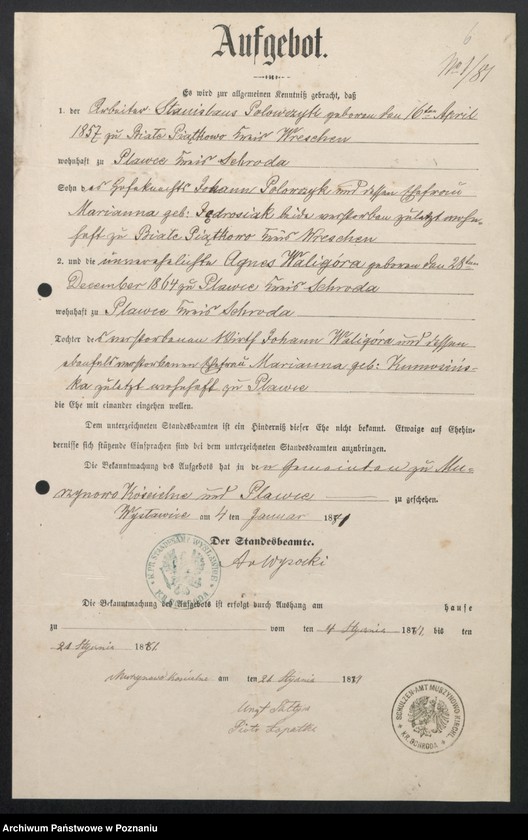 6
No 1/81
Aufgebot.
Es wird zur allgemeinen Kenntniß gebracht, daß
1. der Arbeiter Stanislaus Polowczyk geboren den 16ten April
1857 zu Biale Piątkowo Kreis Wreschen
wohnhaft zu Plawce Kreis Schroda
Sohn des Johann Polowczyk und dessen Ehefrau
Marianna geb: Jędrosiak beide verstorben zuletzt wohn-
haft zu Biale Piątkowo Kreis Wreschen
2. und die unverehelichte Agnes Waligóra geboren den 28ten
December 1864 zu Plawce Kreis Schroda
wohnhaft zu Plawce Kreis Schroda
Tochter des verstorbenen Wirth Johann Waligóra und dessen
ebenfalls verstorbenen Ehefrau Marianna geb:
zuletzt wohnhaft zu Plawce
die Ehe mit einander eingehen wollen.
Dem unterzeichneten Standesbeamten ist ein Hinderniß dieser Ehe nicht bekannt. Etwaige auf Ehehin-
dernisse sich stützende Einsprachen sind bei dem unterzeichneten Standesbeamten anzubringen.
Die Bekanntmachung des Aufgebots hat in den Gemeinden zu Mu-
szynowo Kościelne und Plawce zu geschehen.
am 4 ten Januar 1881
Der Standesbeamte.
Wysocki
Die Bekanntmachung des Aufgebots ist erfolgt durch Aushang am hause
zu vom ten 4 Stycznia bis ten
21 Stycznia 1881.
am ten 21 Stycznia
SCHULZEN-AMT MUSZYNOWO KIRCHL.
KR. SCHRODA
Archiwum Państwowe w Poznaniu